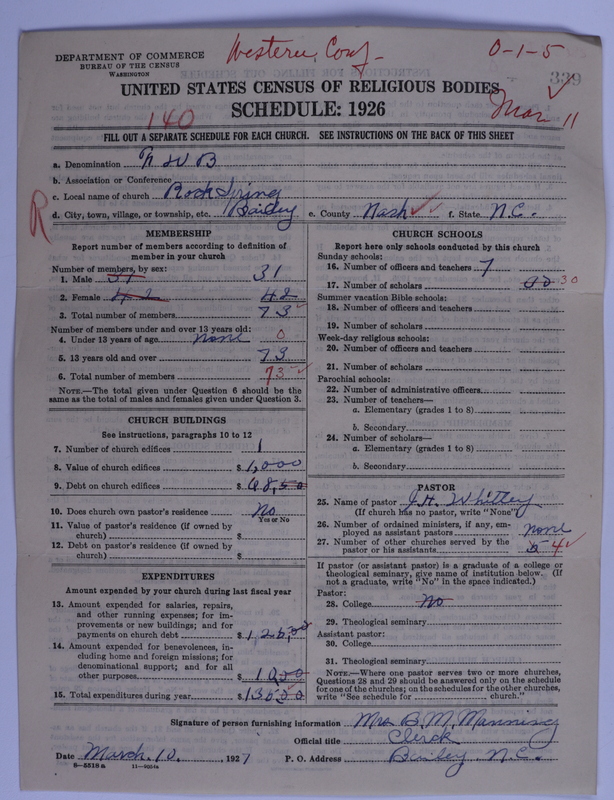 DEPARTMENT OF COMMERCE
BUREAU OF THE CENSUS
WASHINGTON
Western Conf
0-1-5
339
UNITED STATES CENSUS OF RELIGIOUS BODIES
SCHEDULE: 1926
140
Mar 11
FILL OUT A SEPARATE SCHEDULE FOR EACH CHURCH. SEE INSTRUCTIONS ON THE BACK OF THIS SHEET
a. Denomination F W B
b. Association or Conference
c. Local name of church Rock Spring
R
d. City, town, village, or township, etc. Bailey e. County Nash f. State N.C.
MEMBERSHIP
Report number of members according to definition of
member in your church
Number of members, by sex:
1. Male 31 31
2. Female 42 42
3. Total number of members 73
Number of members under and over 13 years old:
4. Under 13 years of age none 0
5. 13 years old and over 73
6. Total number of members 73
NOTE.—The total given under Question 6 should be the
same as the total of males and females given under Question 3.
CHURCH BUILDINGS
See instructions, paragraphs 10 to 12
7. Number of church edifices 1
8. Value of church edifices $ 1,000
9. Debt on church edifices $
10. Does church own pastor's residence No
Yes or No
11. Value of pastor's residence (if owned by
church) $
12. Debt on pastor's residence (if owned by
church) $
EXPENDITURES
Amount expended by your church during last fiscal year
13. Amount expended for salaries, repairs,
and other running expenses; for im-
provements or new buildings; and for
payments on church debt $
14. Amount expended for benevolences, in-
cluding home and foreign missions; for
denominational support; and for all
other purposes $ 10.00
15. Total expenditures during year $
CHURCH SCHOOLS
Report here only schools conducted by this church
Sunday schools:
16. Number of officers and teachers 7
17. Number of scholars 30
Summer vacation Bible schools:
18. Number of officers and teachers
19. Number of scholars
Week-day religious schools:
20. Number of officers and teachers
21. Number of scholars
Parochial schools:
22. Number of administrative officers
23. Number of teachers—
a. Elementary (grades 1 to 8)
b. Secondary
24. Number of scholars—
a. Elementary (grades 1 to 8)
b. Secondary
PASTOR
25. Name of pastor J.H. Whitley
(If church has no pastor, write "None")
26. Number of ordained ministers, if any, em-
ployed as assistant pastors none
27. Number of other churches served by the
pastor or his assistants 5 4
If pastor (or assistant pastor) is a graduate of a college or
theological seminary, give name of institution below. (If
not a graduate, write "No" in the space indicated.)
Pastor:
28. College No
29. Theological seminary
Assistant pastor:
30. College
31. Theological seminary
NOTE.—Where one pastor serves two or more churches,
Questions 28 and 29 should be answered only on the schedule
for one of the churches; on the schedules for the other churches,
write "See schedule for church."
Signature of person furnishing information Mrs B. M. Manning
Official title Clerk
Date March, 10, 1927 P. O. Address Bailey N.C.
8-5518a 11-9504a